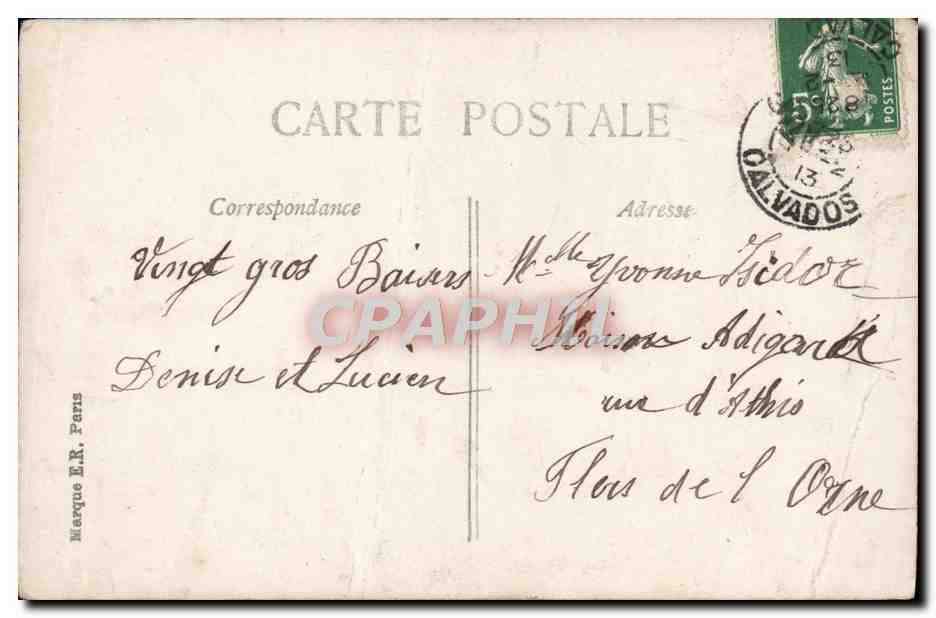 CARTE POSTALE
Correspondance
Adresse
Vingt gros Baisers
Denise et Lucien
Mlle Yvonne Isidor
Maison Adigard
rue d'Athis
Flers de l Orne
Marque E.R. Paris
CPAPHIL
5
POSTES
13
CALVADOS